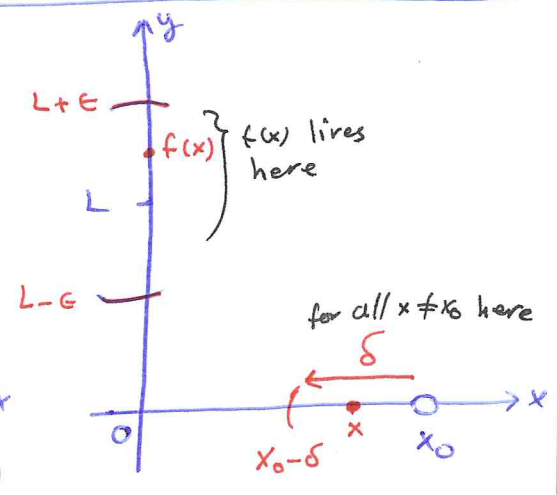 y
L+ϵ
f(x)
f(x) lives
here
L
L-ϵ
for all x≠x₀ here
δ
x
0
x
x₀
x₀-δ